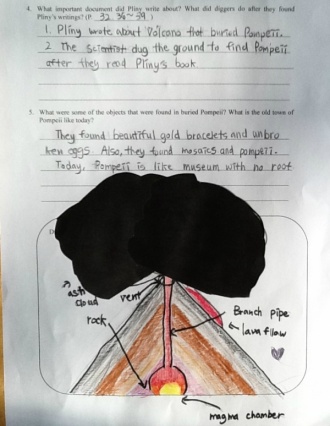 4. What important document did Pliny write about? What did diggers do after they found
Pliny's writings? (P. 32, 36~39 )
1. Pliny wrote about Volcano that buried Pompeii.
2 The scientist dug the ground to find Pompeii
after they read Pliny's book.
5. What were some of the objects that were found in buried Pompeii? What is the old town of
Pompeii like today?
They found beautiful gold bracelets and unbro
ken eggs. Also, they found mosaics and pompeii.
Today, Pompeii is like museum with no roof
ash
cloud
vent
rock
Branch pipe
lava flow
magma chamber